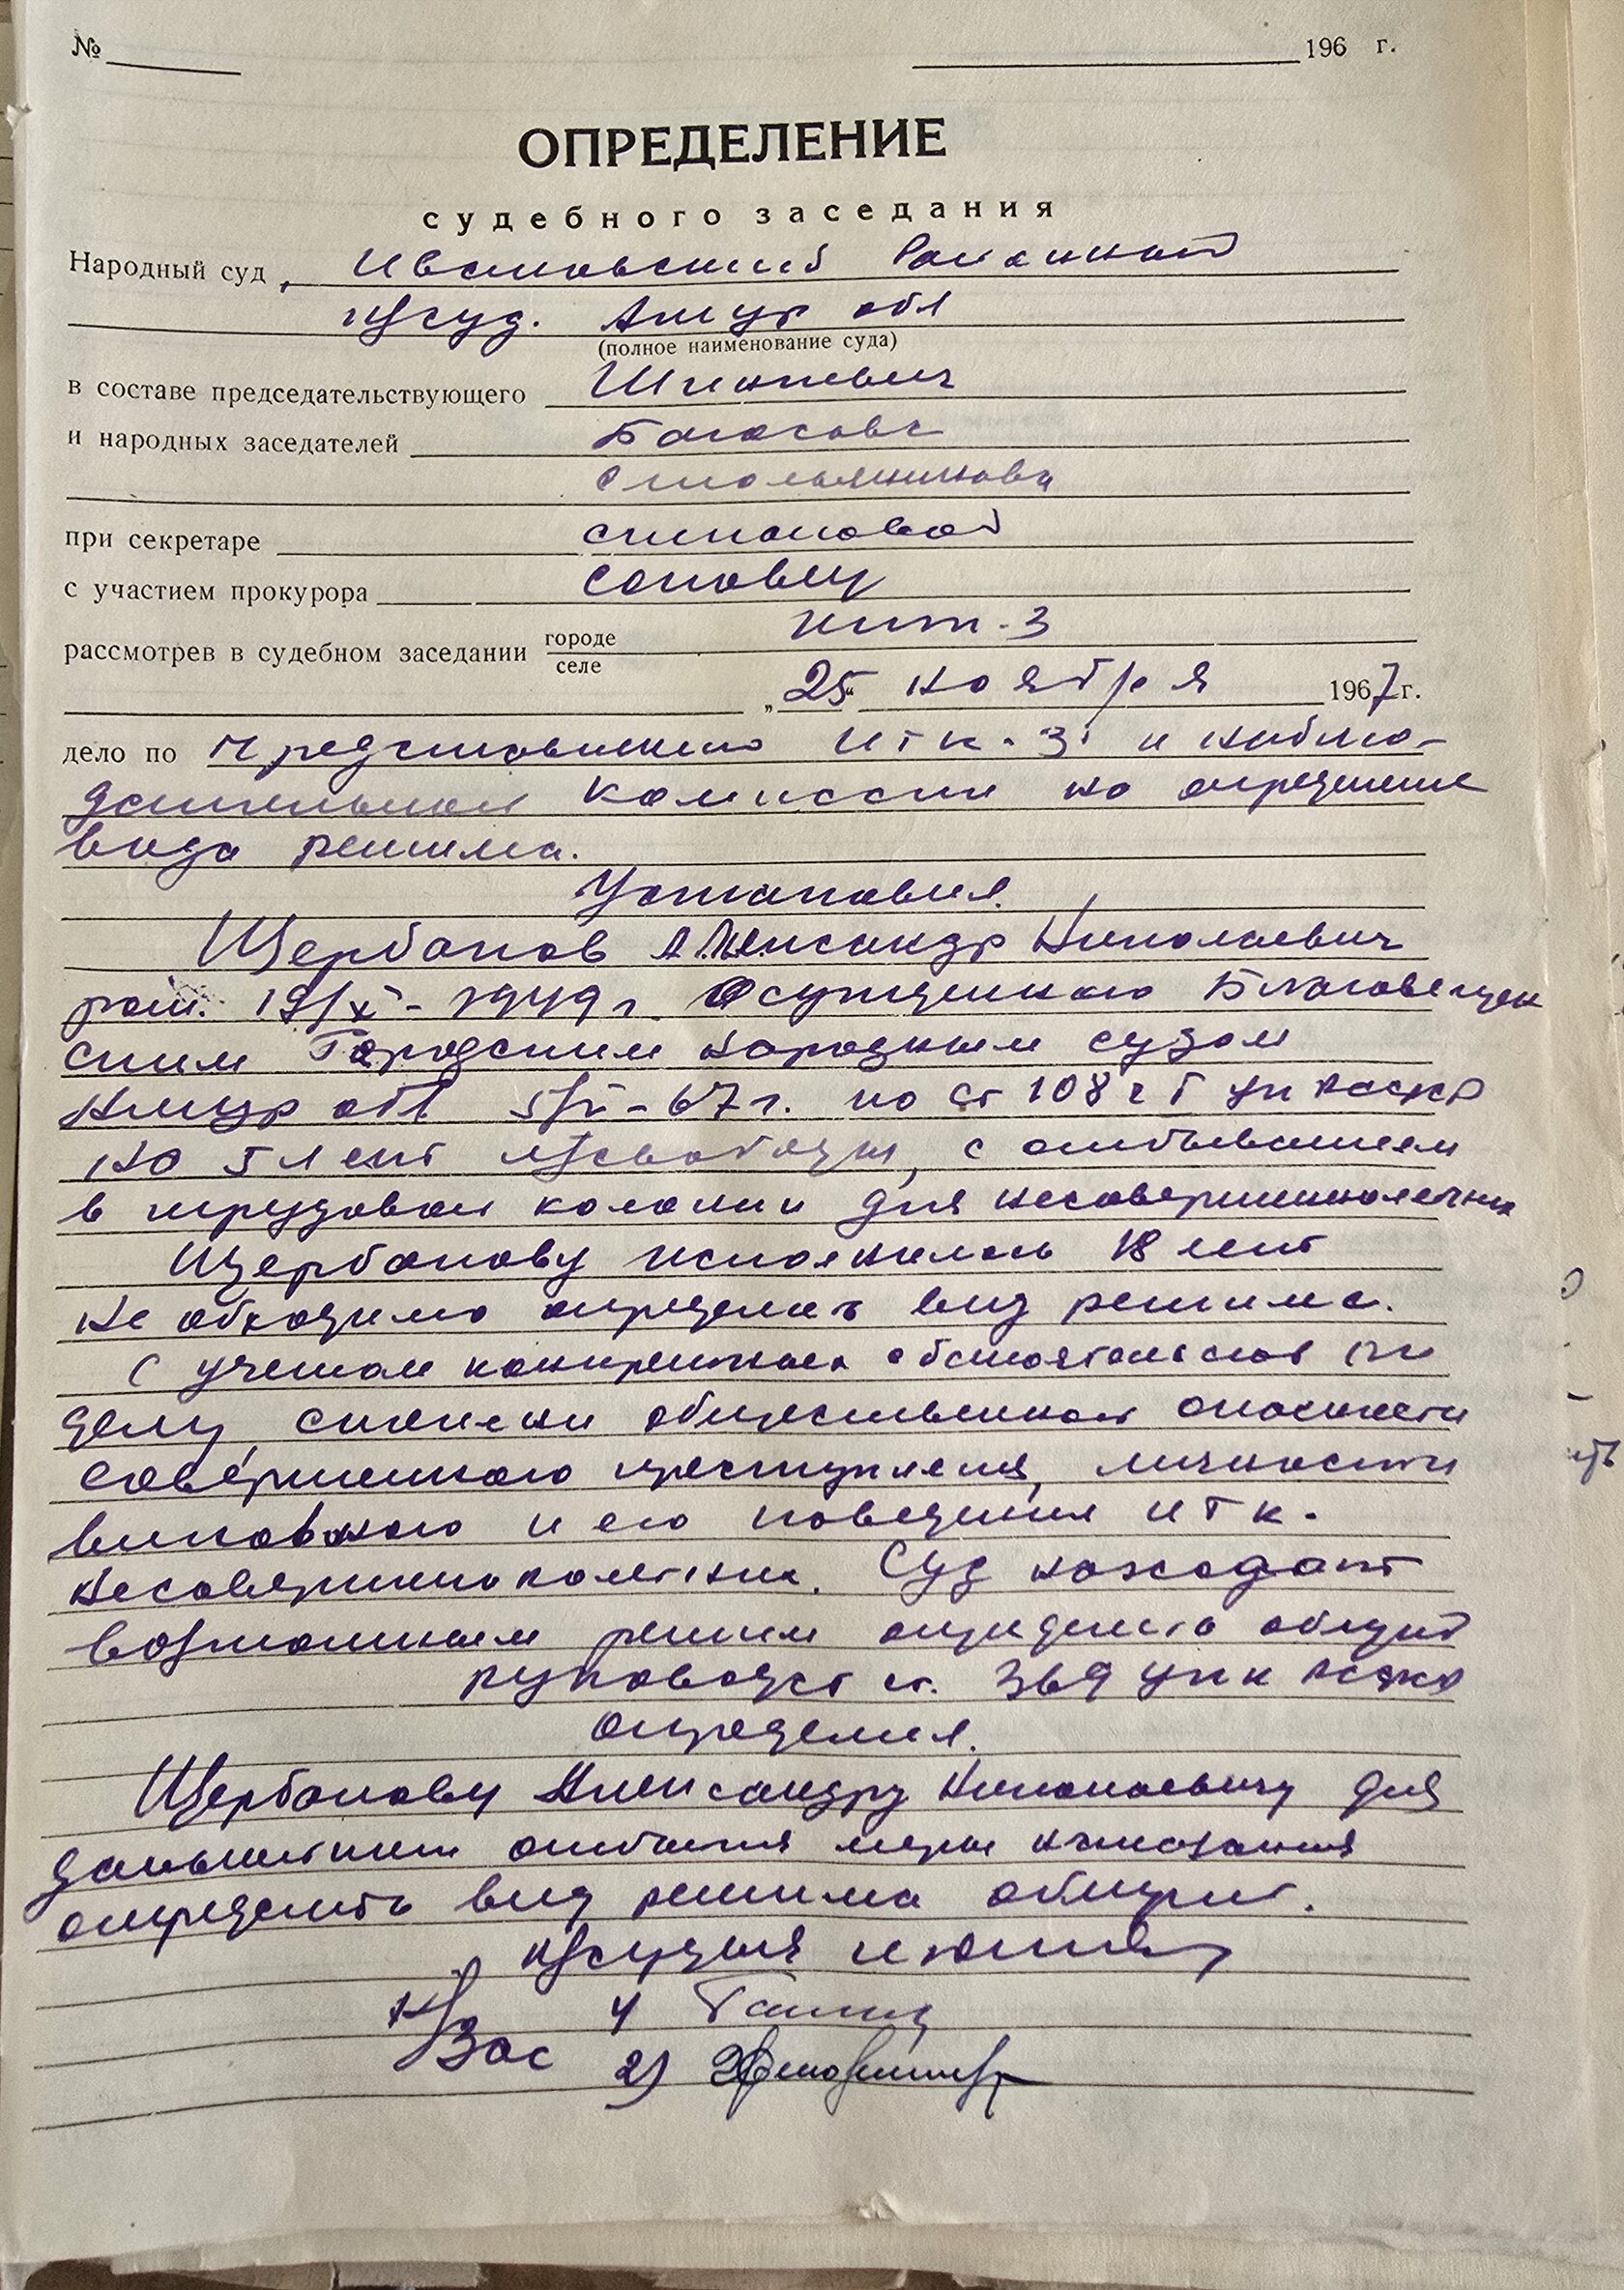 № 196 г.
ОПРЕДЕЛЕНИЕ
судебного заседания
Народный суд Ивановский Районный
н/суд. Амур обл
(полное наименование суда)
в составе председательствующего Шинкевич
и народных заседателей
Смольянинова
при секретаре Симоновой
с участием прокурора
рассмотрев в судебном заседании городе селе ИТК-3
„25“ ноября 1967 г.
дело по представлению ИТК-3 и наблю-
дательной комиссии на определение
вида режима.
Установил.
Щербаков Александр Николаевич
рож. 19/X-1949 г. Осужденного Благовещен
ским Городским народным судом
Амур обл 67 г. по ст 108 ч УК РСФСР
на 5 лет л/свободы, с отбыванием
в трудовой колонии для несовершеннолетних
Щербакову исполнилось 18 лет
необходимо определить вид режима.
С учетом конкретных обстоятельств по
делу, степени общественной опасности
совершенного преступления, личности
виновного и его поведения ИТК.
несовершеннолетних. Суд находит
возможным режим определить общий
руководст ст. 369 УПК РСФСР
определил.
Щербакову Александру Николаевичу для
дальнейшего отбытия меры наказания
определить вид режима общий.
Н/судья
Н/Зас 1)
2)